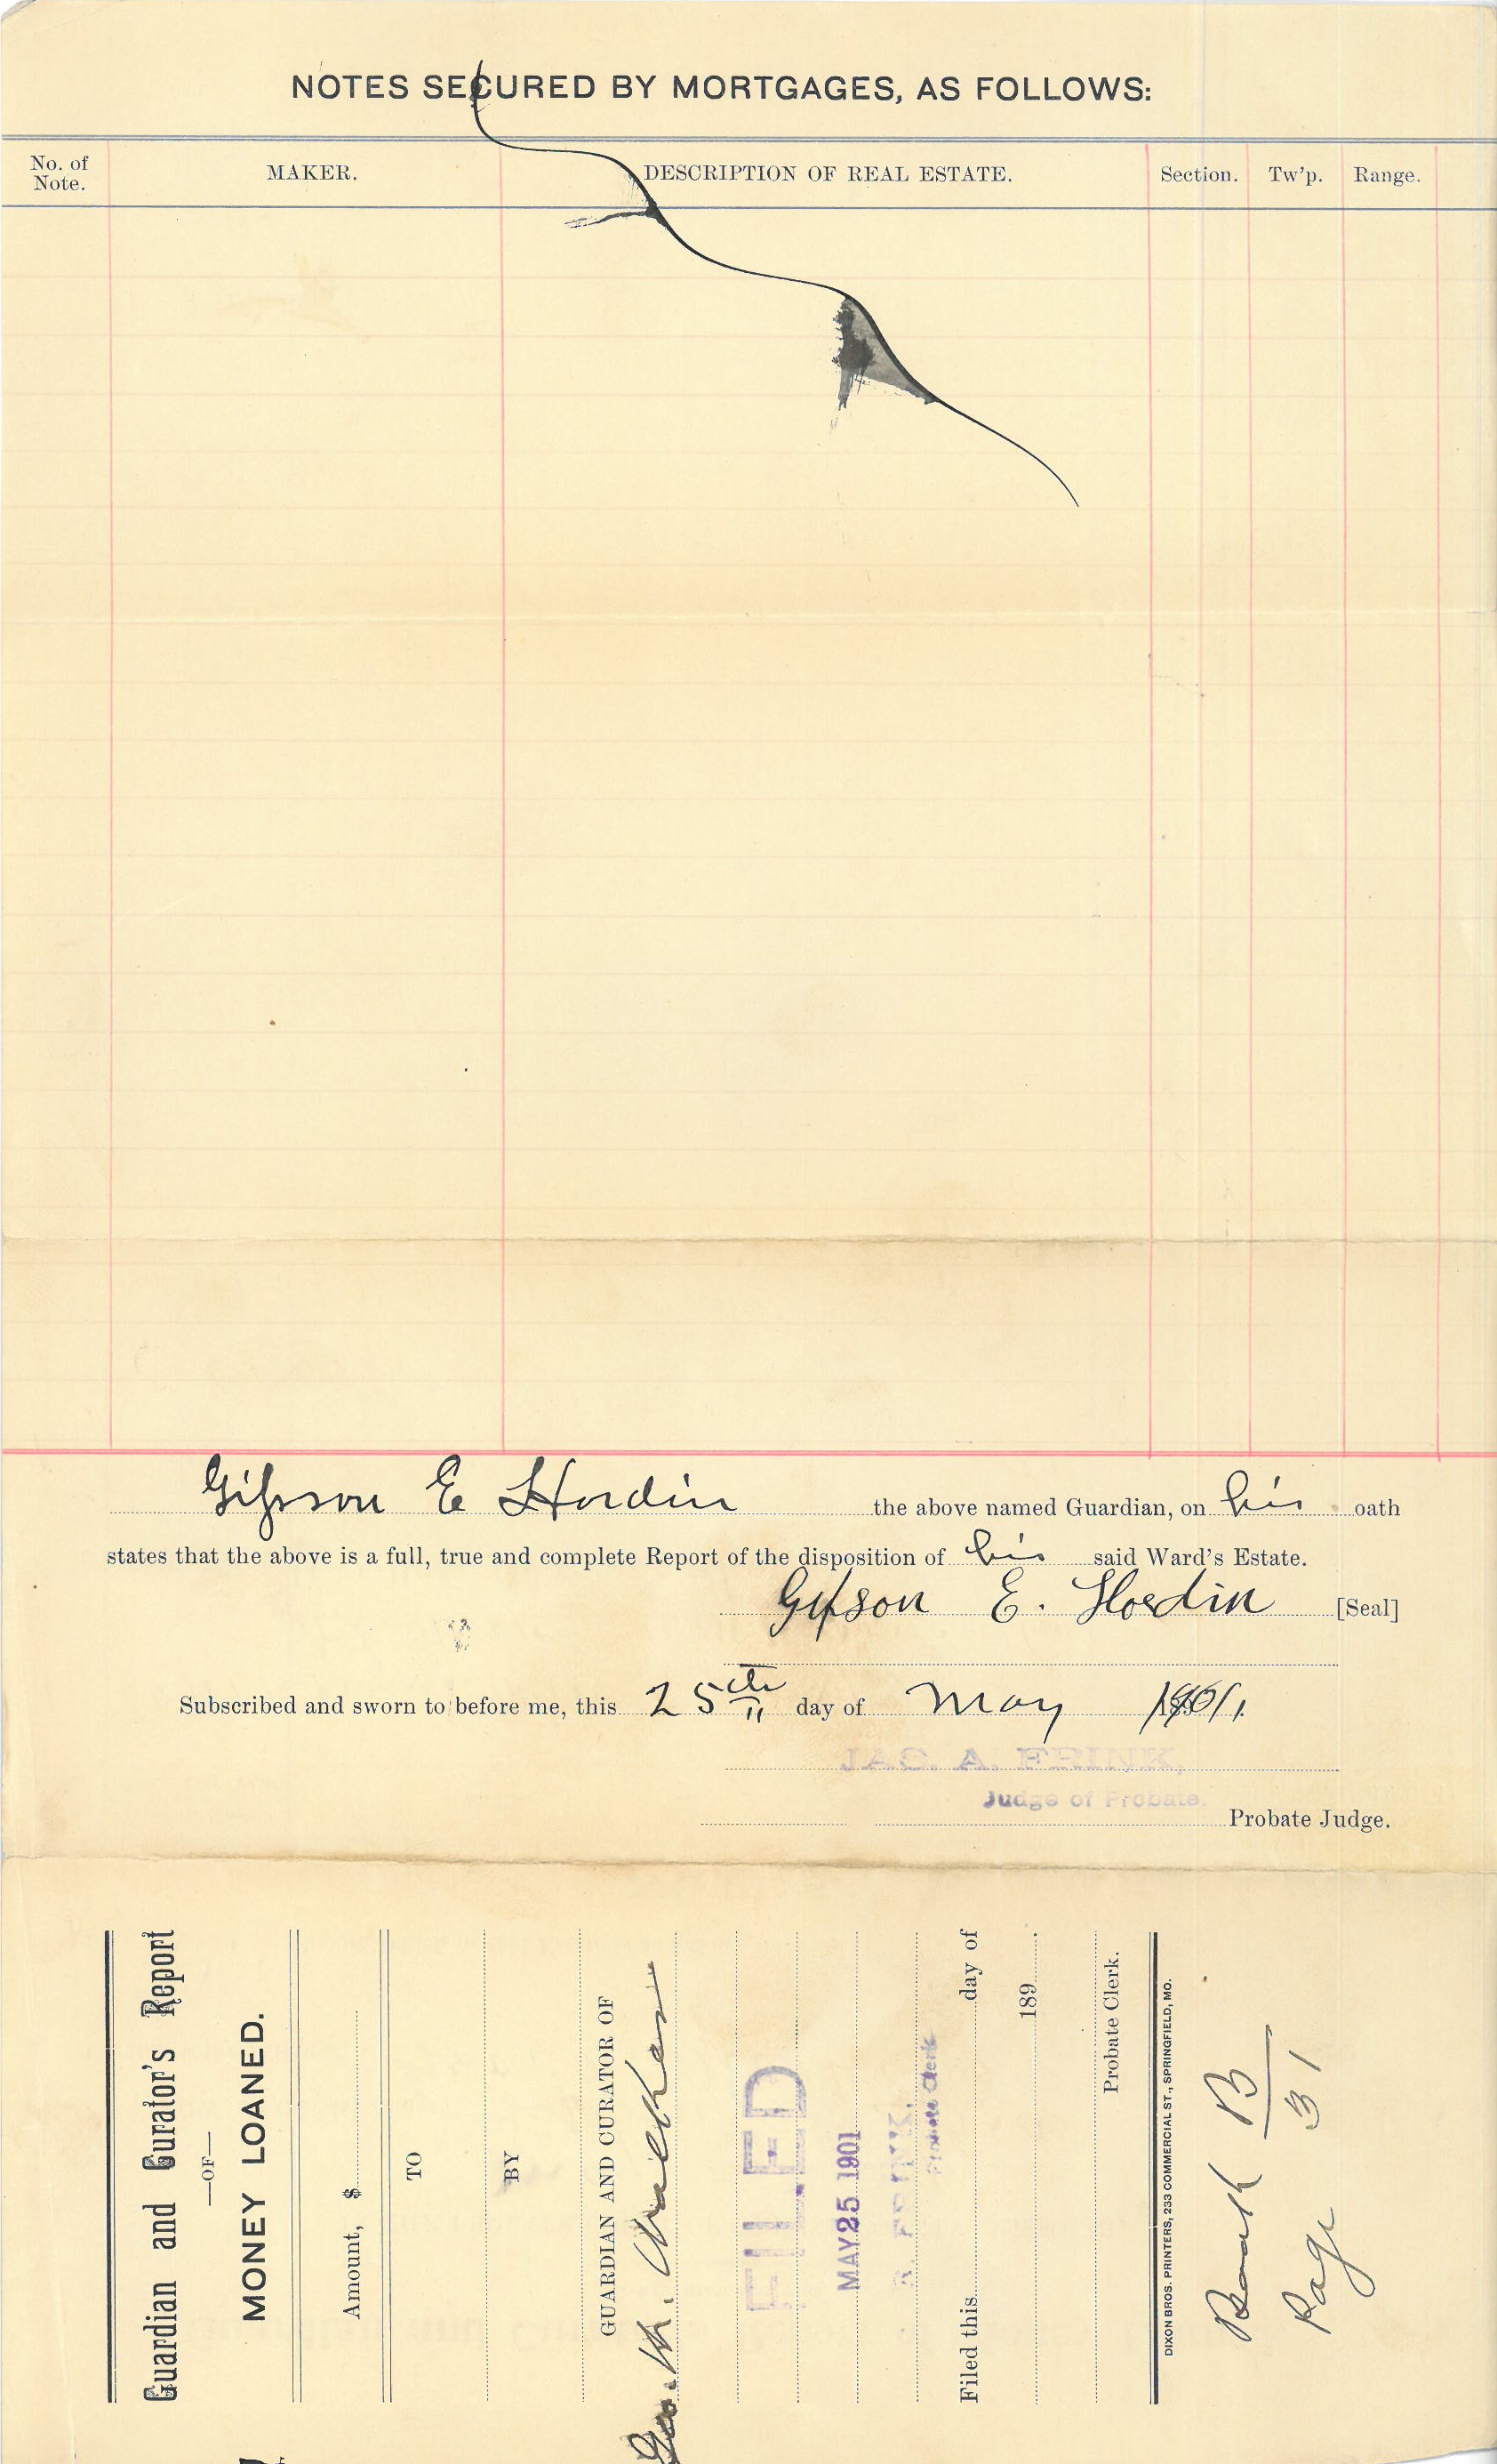 NOTES SECURED BY MORTGAGES, AS FOLLOWS:
No. of Note. MAKER. DESCRIPTION OF REAL ESTATE. Section. Tw'p. Range.
Gipson E Hordin the above named Guardian, on his oath
states that the above is a full, true and complete Report of the disposition of his said Ward's Estate.
Gipson E. Hordin [Seal]
Subscribed and sworn to before me, this 25th day of May 1901.
JAC. A. FRINK,
Judge of Probate.
Probate Judge.
Guardian and Curator's Report
—OF—
MONEY LOANED.
Amount, $
TO
BY
GUARDIAN AND CURATOR OF
Geo. M.
FILED
MAY 25 1901
FRINK,
Probate Clerk
Filed this day of
189 .
Probate Clerk.
DIXON BROS. PRINTERS, 233 COMMERCIAL ST., SPRINGFIELD, MO.
Book B
Page 31